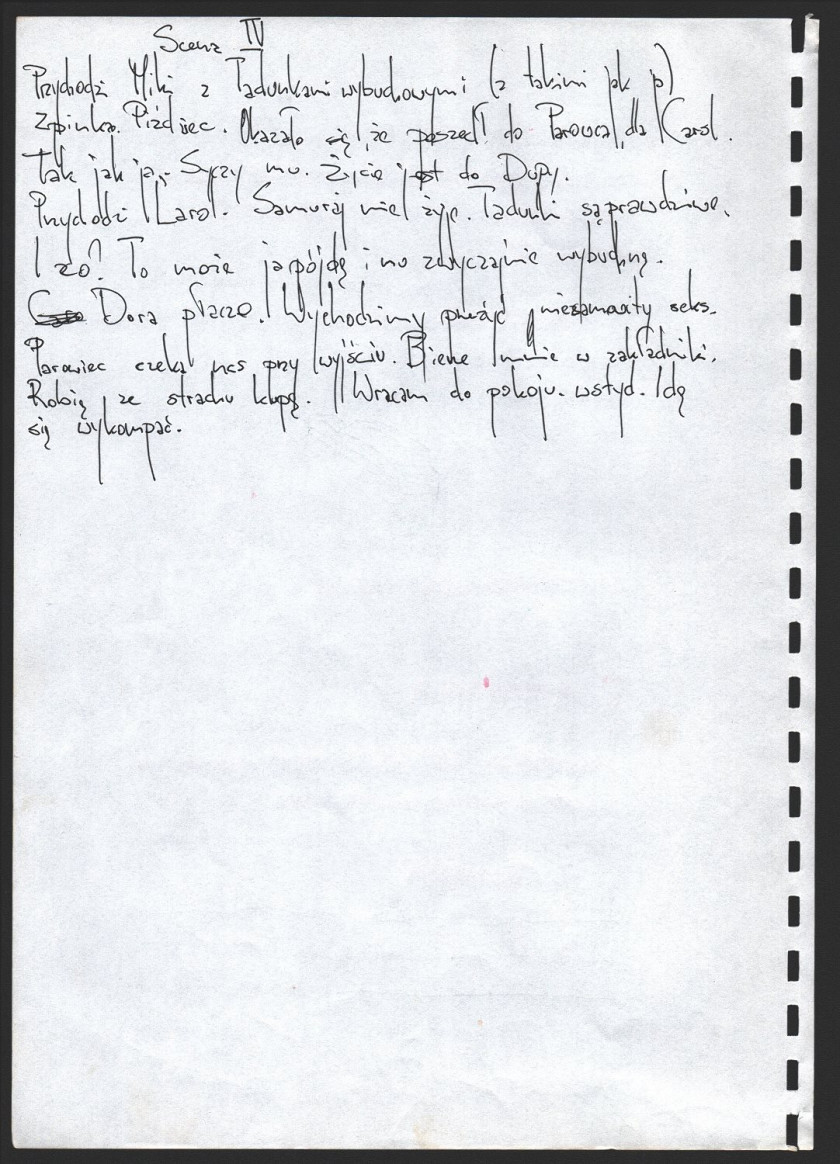 Scena IV
Przychodzi Miki z Ładunkami wybuchowymi (z takimi jak ja)
Zpinka. Piździec. Okazało się, że poszedł do Parowca, dla Karol.
Tak jak ja. Syczy mu. Życie jest do Dupy.
Przychodzi Karol. Samuraj miel żyje. Ładunki są prawdziwe.
I co? To może ja pójdę i no zwyczajnie wybuchnę.
Dora płacze. Wychodzimy przeżyć niesamowity seks.
Parowiec czeka nas przy wyjściu. Bierze mnie w zakładniki.
Robię ze strachu klupę. Wracam do pokoju. wstyd. Idę
się wykompać.